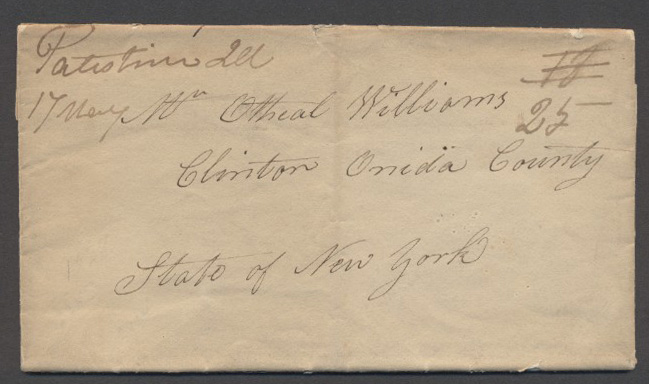 Palestine Ill
17 May
25
Mr Otheal Williams
Clinton Onida County
State of New York